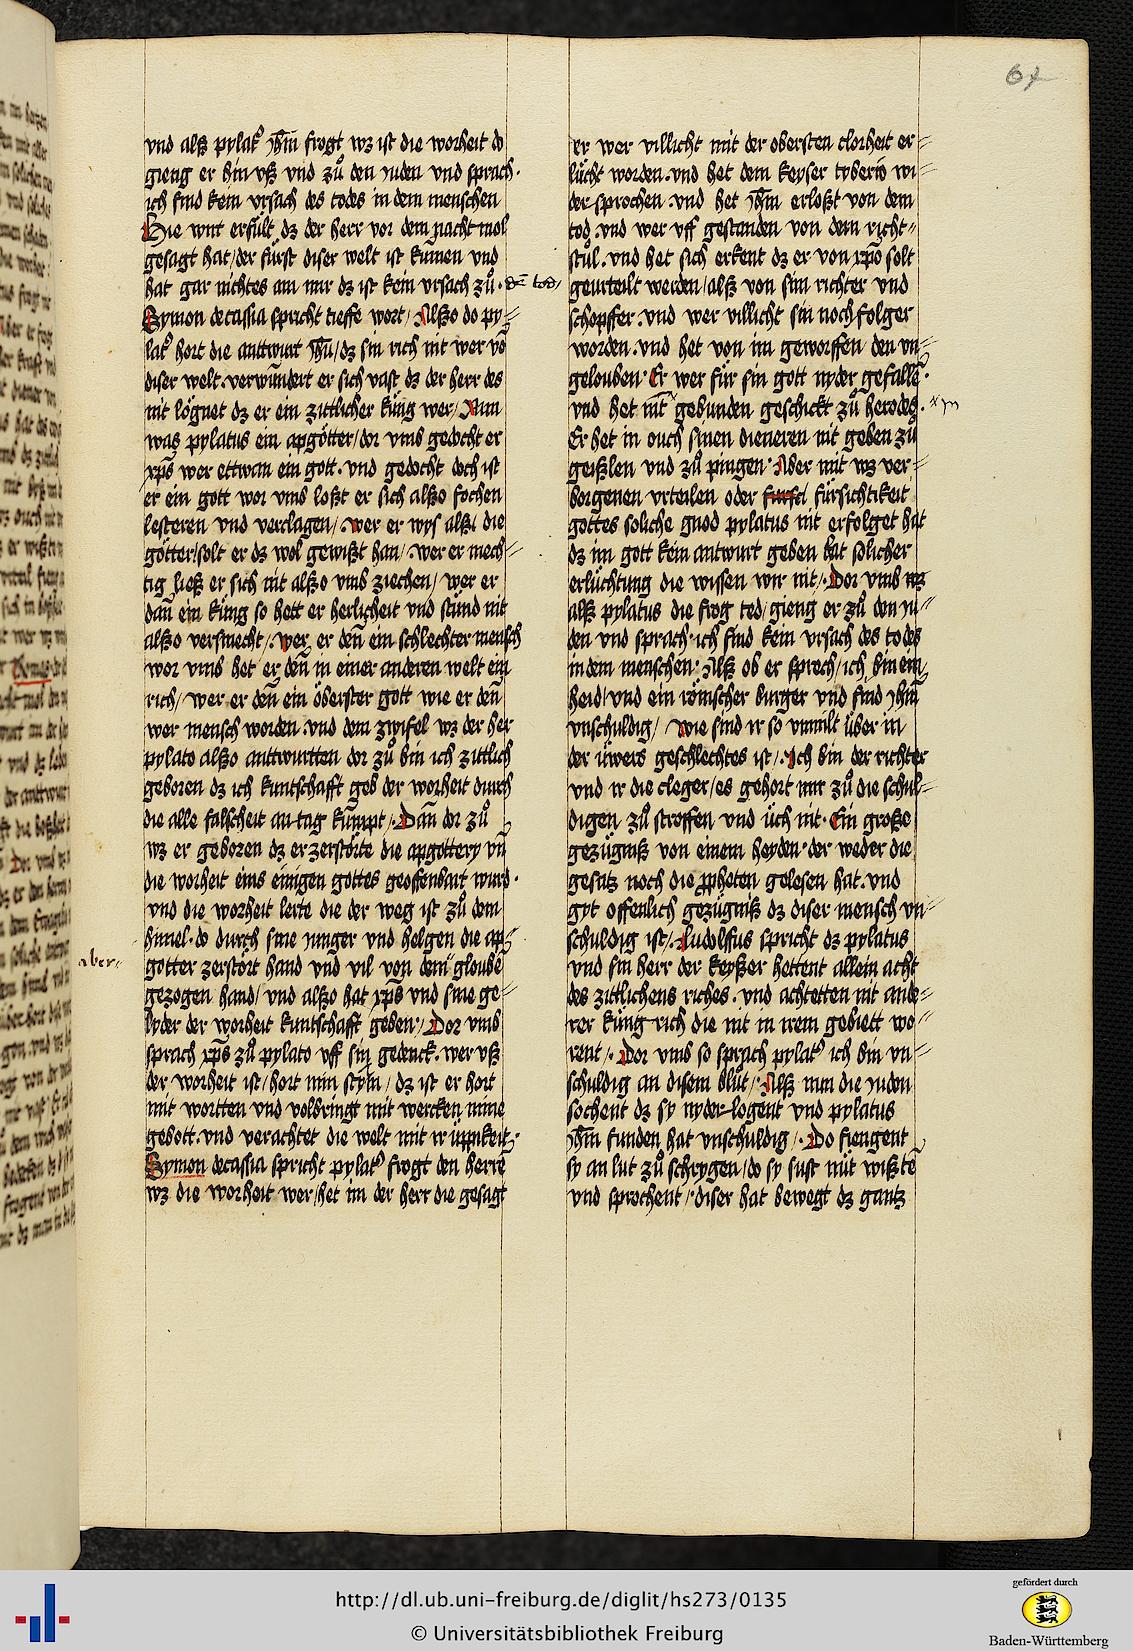 67
vnd alß pylatꝰ jhm̄ frogt wz ist die worheit do
gieng er hin vß vnd zů den juden vnd sprach·
ich find kein vrsach des todes in dem menschen
Hie wirt erfült dz der herr vor dem nacht mol
gesagt hat / der fürst diser welt ist kumen vnd
hat gar nichtes an mir dz ist kein vrsach zů· dē tod /
Symon de cassia spricht tieffe wort / Alßo do py=
latꝰ hort die anttwurt jhū / dz sin rich nit wer vō
diser welt· verwundert er sich vast dz der herr des
nit lögnet dz er ein zittlicher küng wer / Nun
was pylatus ein apgötter / dor vmb gedocht er
xp̄s wer ettwan ein gott· vnd gedocht doch ist
er ein gott wor vmb loßt er sich alßo fochen
lesteren vnd verclagen / wer er wys alß die
götter / solt er dz wol gewißt han / wer er mech=
tig ließ er sich nit alßo vmb ziechen / wer er
dañ ein küng so hett er herlicheit vnd stünd nit
alßo versmecht / wer er deñ ein schlechter mensch
wor vmb het er deñ in einer anderen welt ein
rich / wer er deñ ein öberster gott wie er deñ
wer mensch worden· vnd dem zwifel wz der her
pylato alßo antwurtten dor zů bin ich zittlich
geboren dz ich kuntschafft geb der worheit durch
die alle falscheit an tag kumpt / Dañ dor zů
wz er geboren dz er zerstörte die apgöttery vñ
die worheit eins einigen gottes geoffenbart wurd·
vnd die worheit lerte die der weg ist zů dem
himel· do durch sine junger vnd helgen die ap=
aber=
götter zerstört hand vnd vil von dem gloubē
gezogen hand / vnd alßo hat xp̄s vnd sine ge=
lyder der worheit kuntschafft geben / Dor vmb
sprach xp̄s zů pylato vff sin gedenck· wer vß
der worheit ist / hort min stym̄ / dz ist er hort
mit wortten vnd volbringt mit wercken mine
gebott· vnd verachtet die welt mit ir üppikeit·
Symon de cassia spricht pylatꝰ frogt den herrē
wz die worheit wer / het im der herr die gesagt
er wer villicht mit der obersten clorheit er=
lücht worden· vnd het dem keyser tyberio wi=
der sprochen· vnd het jhm̄ erloßt von dem
tod· vnd wer vff gestanden von dem richt=
stůl· vnd het sich erkent dz er von xp̄o solt
geurteilt werden / alß von sim richter vnd
schopffer· vnd wer villicht sin nochfolger
worden· vnd het von im geworffen den vn=
gelouben· Er wer für sin gott nyder gefallē·
vnd het nit gebunden geschickt zů herodes· × jn
Er het in ouch sinen dieneren nit geben zů
geißlen vnd zů pingen· Aber mit wz ver=
borgenen vrteilen oder fürsichtikeit
gottes soliche gnod pylatus nit erfolget hat
dz im gott kein antwurt geben hat solicher
erlüchtung die wissen wir nit / Dor vmb
alß pylatus die frog ted / gieng er zů den ju=
den vnd sprach· ich find kein vrsach des todes
in dem menschen· Alß ob er sprech / ich bin ein
heid / vnd ein römischer burger vnd find jhm̄
vnschuldig / wie sind ir so vnmilt über in
der üwers geschlechtes ist / Ich bin der richter
vnd ir die cleger / es gehort mir zů die schul=
digen zů stroffen vnd üch nit· Ein große
gezügniß von einem heyden· der weder die
gesatz noch die ꝓpheten gelesen hat· vnd
gyt offenlich gezügniß dz diser mensch vn=
schuldig ist / Ludolffus spricht dz pylatus
vnd sin herr der keyßer hettent allein acht
des zittlichens riches· vnd achtetten nit ande=
rer küng rich die nit in irem gebiett wo=
rent / Dor vmb so sprach pylatꝰ ich bin vn=
schuldig an disem blůt / Alß nun die juden
sochent dz sy nyder logent vnd pylatus
jhm̄ funden hat vnschuldig / Do fiengent
sy an lut zů schrygen / do sy sust nüt wißtē
vnd sprochent / diser hat bewegt dz gantz
http://dl.ub.uni-freiburg.de/diglit/hs273/0135
© Universitätsbibliothek Freiburg
gefördert durch
Baden-Württemberg